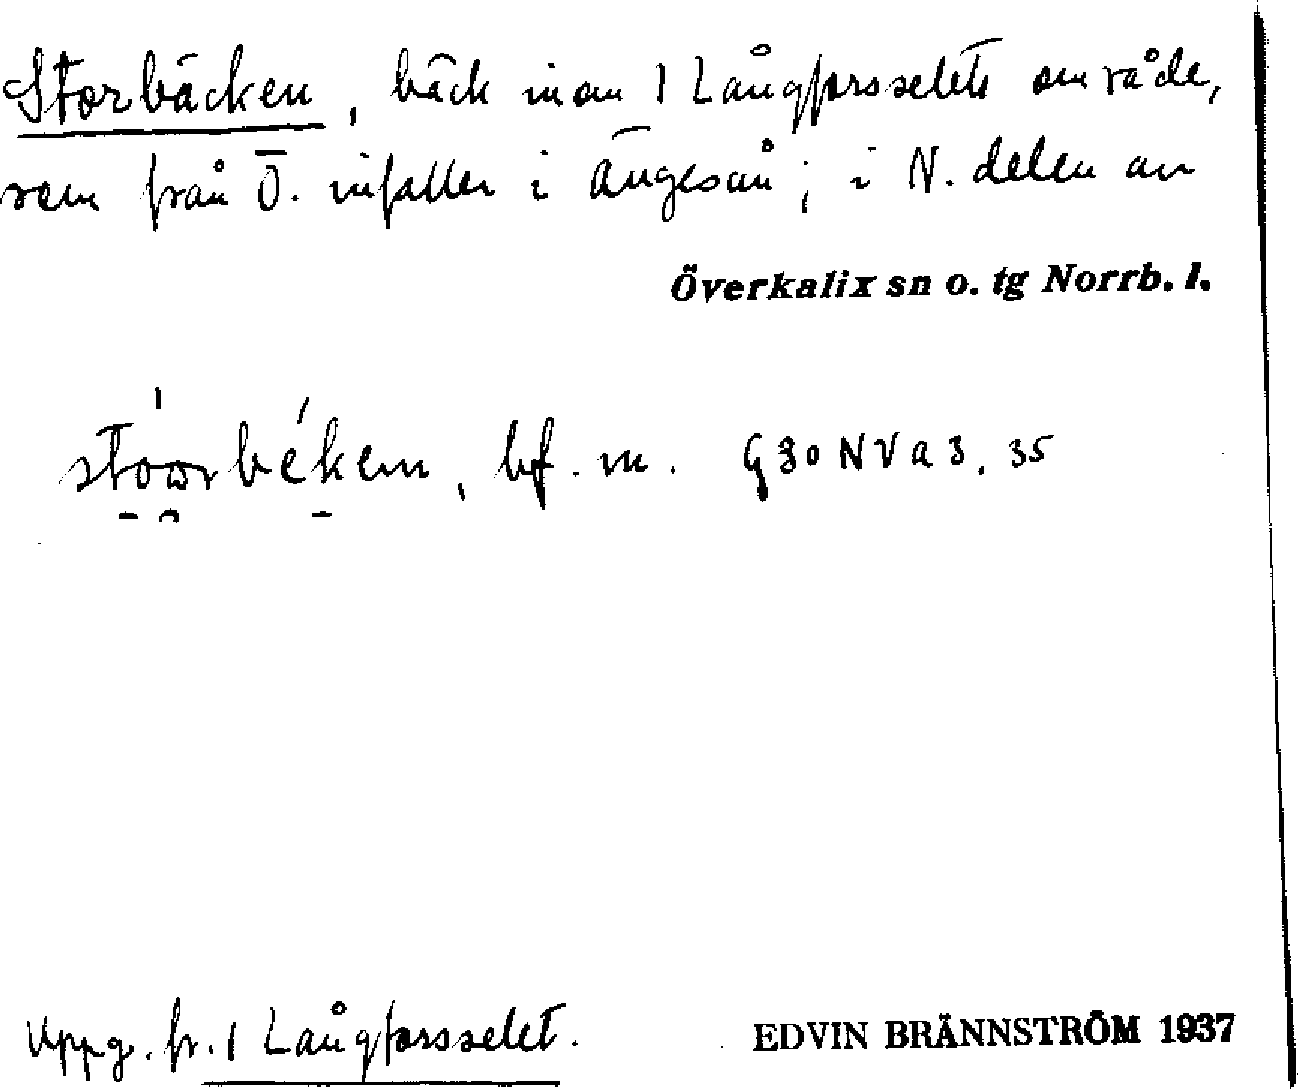 Storbäcken, bäck inom 1 Långforsselets område,
som från Ö. infaller i Ängesån; i N. delen av
Överkalix sn o. tg Norrb. l.
bf. m. G30NVa3, 35
Uppg. fr. 1 Långforsselet.
EDVIN BRÄNNSTRÖM 1937